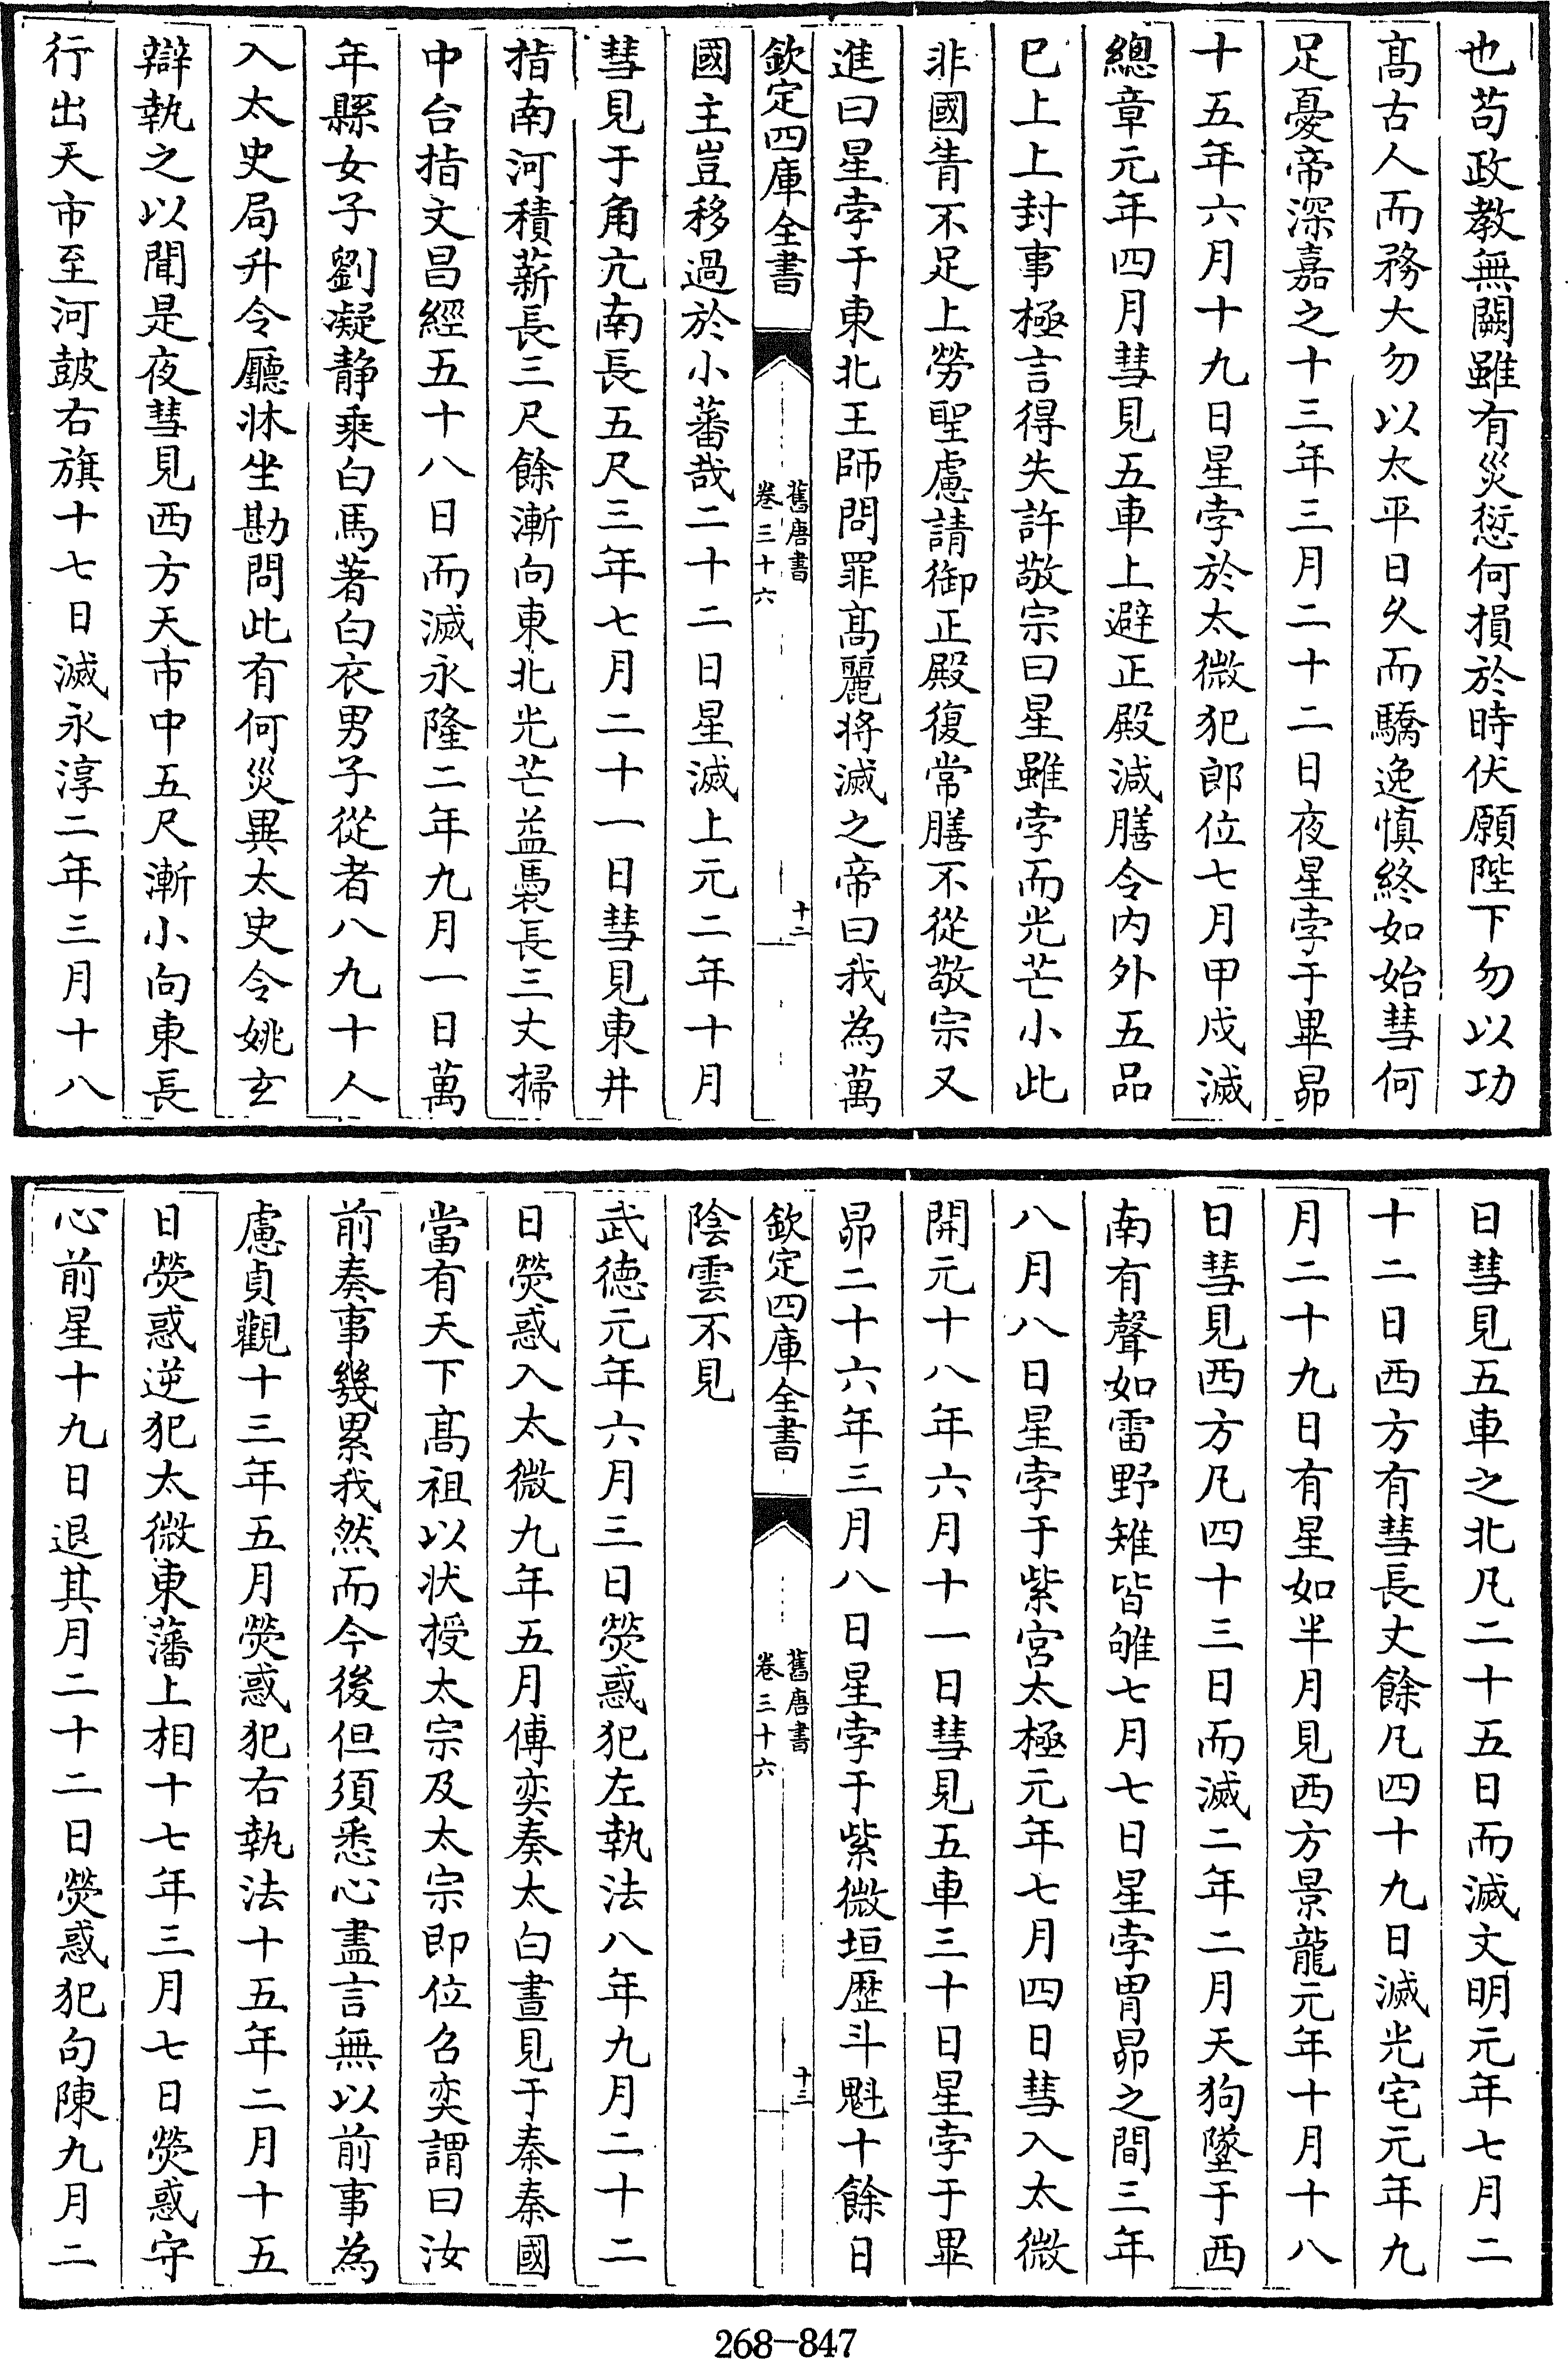 也苟政教無闕雖有災愆何損於時伏願陛下勿以功
髙古人而務大勿以太平日久而驕逸慎終如始彗何
足憂帝深嘉之十三年三月二十二日夜星孛于畢昴
十五年六月十九日星孛於太微犯郎位七月甲戍滅
總章元年四月彗見五車上避正殿減膳令内外五品
已上上封事極言得失許敬宗曰星雖孛而光芒小此
非國眚不足上勞聖慮請御正殿復常膳不從敬宗又
進曰星孛于東北王師問罪髙麗將滅之帝曰我為萬
欽定四庫全書
舊唐書
卷三十六
十二
國主豈移過於小蕃哉二十二日星滅上元二年十月
彗見于角亢南長五尺三年七月二十一日彗見東井
指南河積薪長三尺餘漸向東北光芒益褭長三丈掃
中台指文昌經五十八日而滅永隆二年九月一日萬
年縣女子劉凝静乗白馬著白衣男子從者八九十人
入太史局升令廳牀坐勘問此有何災異太史令姚玄
辯執之以聞是夜彗見西方天市中五尺漸小向東長
行出天市至河皷右旗十七日滅永淳二年三月十八
日彗見五車之北凡二十五日而滅文明元年七月二
十二日西方有彗長丈餘凡四十九日滅光宅元年九
月二十九日有星如半月見西方景龍元年十月十八
日彗見西方凡四十三日而滅二年二月天狗墜于西
南有聲如雷野雉皆雊七月七日星孛胃昴之間三年
八月八日星孛于紫宫太極元年七月四日彗入太微
開元十八年六月十一日彗見五車三十日星孛于畢
昴二十六年三月八日星孛于紫微垣歴斗魁十餘日
欽定四庫全書
舊唐書
卷三十六
十三
陰雲不見
武徳元年六月三日熒惑犯左執法八年九月二十二
日熒惑入太微九年五月傅奕奏太白晝見于秦秦國
當有天下髙祖以狀授太宗及太宗即位召奕謂曰汝
前奏事幾累我然而今後但須悉心盡言無以前事為
慮貞觀十三年五月熒惑犯右執法十五年二月十五
日熒惑逆犯太微東藩上相十七年三月七日熒惑守
心前星十九日退其月二十二日熒惑犯句陳九月二
268-847